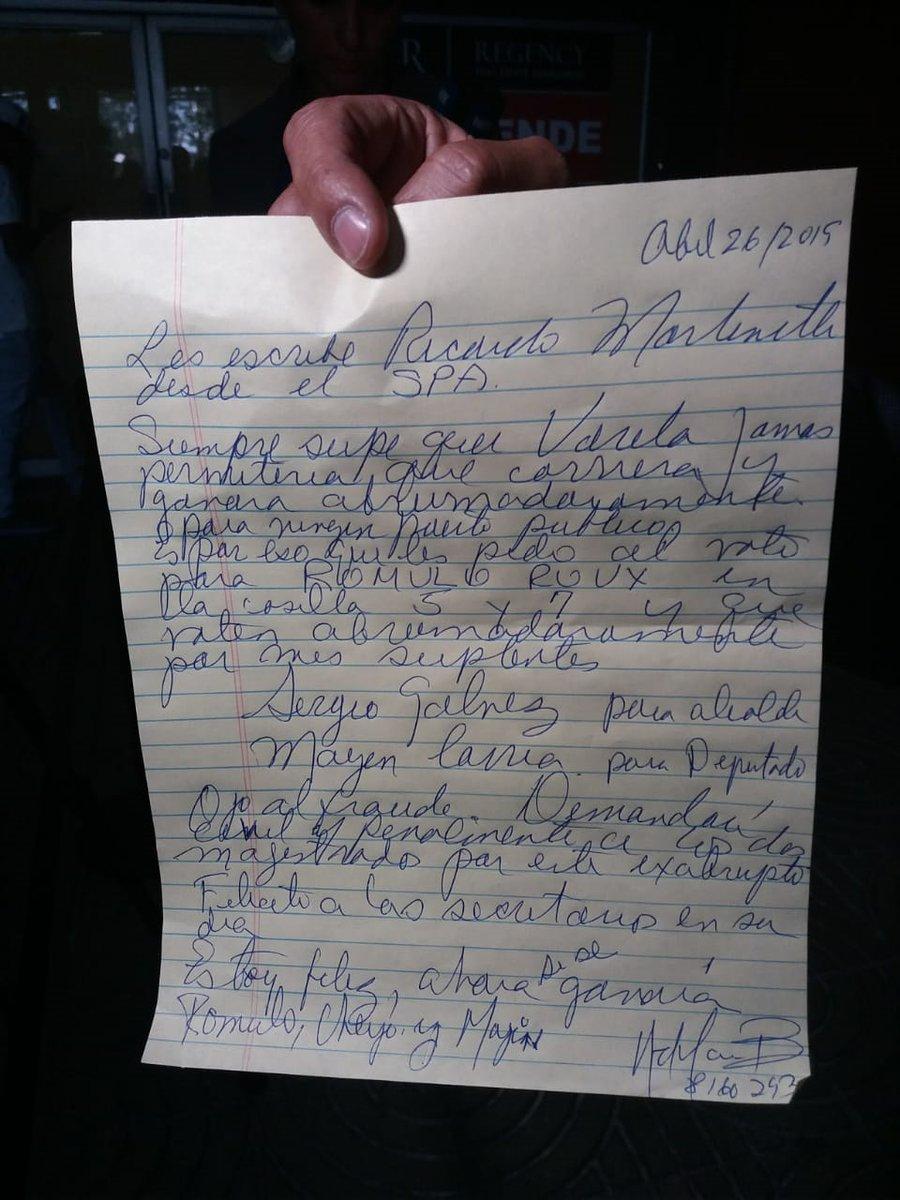 R
REGENCY
ENDE
Abril 26/2019
Les escribe Ricardo Martinelli
desde el SPA.
Siempre supe que Varela jamas
permitiria que corriera y
ganara abrumadoramente
para ningun puesto publico
Es por eso que les pido el voto
para ROMULO ROUX en
lla casilla 5 y 7 y que
voten abrumadoramente
por mis suplentes
Sergio Galvez para alcalde
Mayer para Deputado
Ojo al fraude. Demandaré
penalmente a los dos
magistrados por este exabrupto
Felicito a las secretarias en su
dia
Estoy feliz, ahora si se ganará
Romulo, y
8160 293